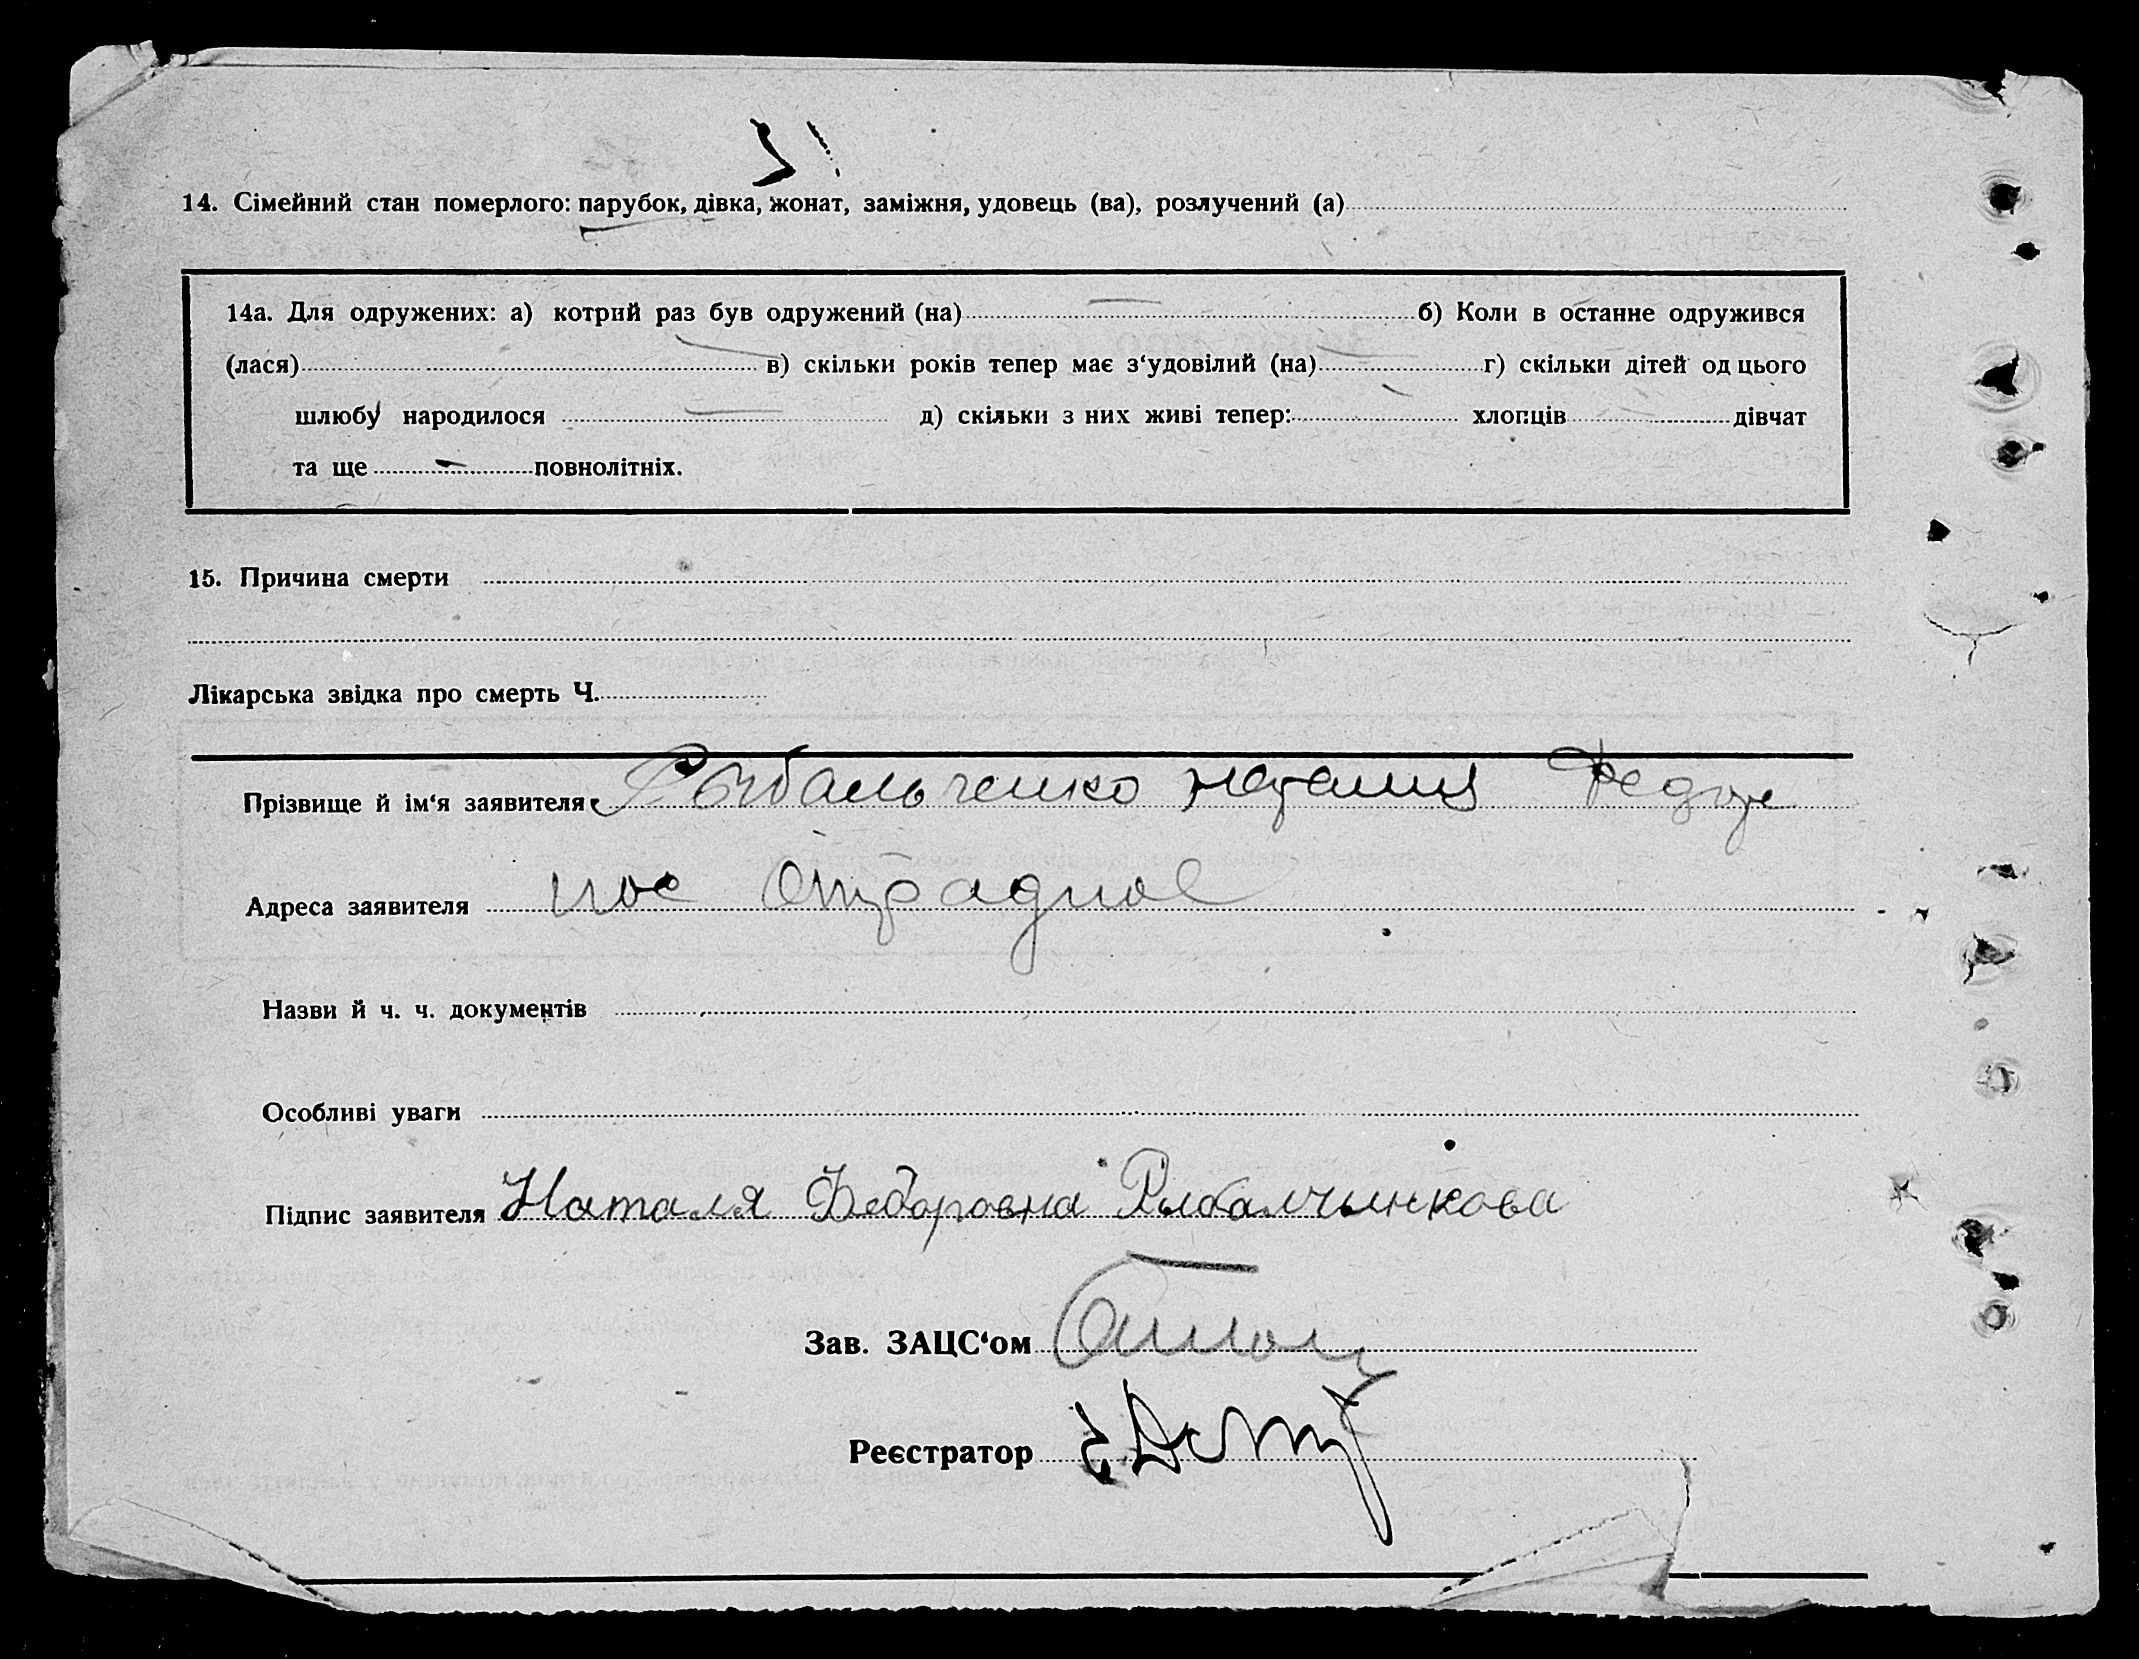 14. Сімейний стан померлого: парубок, дівка, жонат, заміжня, удовець (ва), розлучений (а)
14а. Для одружених: а) котрий раз був одружений (на) б) Коли в останне одружився
(лася) в) скільки років тепер має з‘удовілий (на) г) скільки дітей од цього
шлюбу народилося д) скільки з них живі тепер: хлопців дівчат
та ще повнолітніх.
15. Причина смерти
Лікарська звідка про смерть Ч.
Прізвище й ім‘я заявителя Рыбальченко Наталия Федор
Адреса заявителя пос Отрадное
Назви й ч. ч. документів
Особливі уваги
Підпис заявителя Наталя Федоровна Рыбалчынкова
Зав. ЗАЦС‘ом
Реєстратор